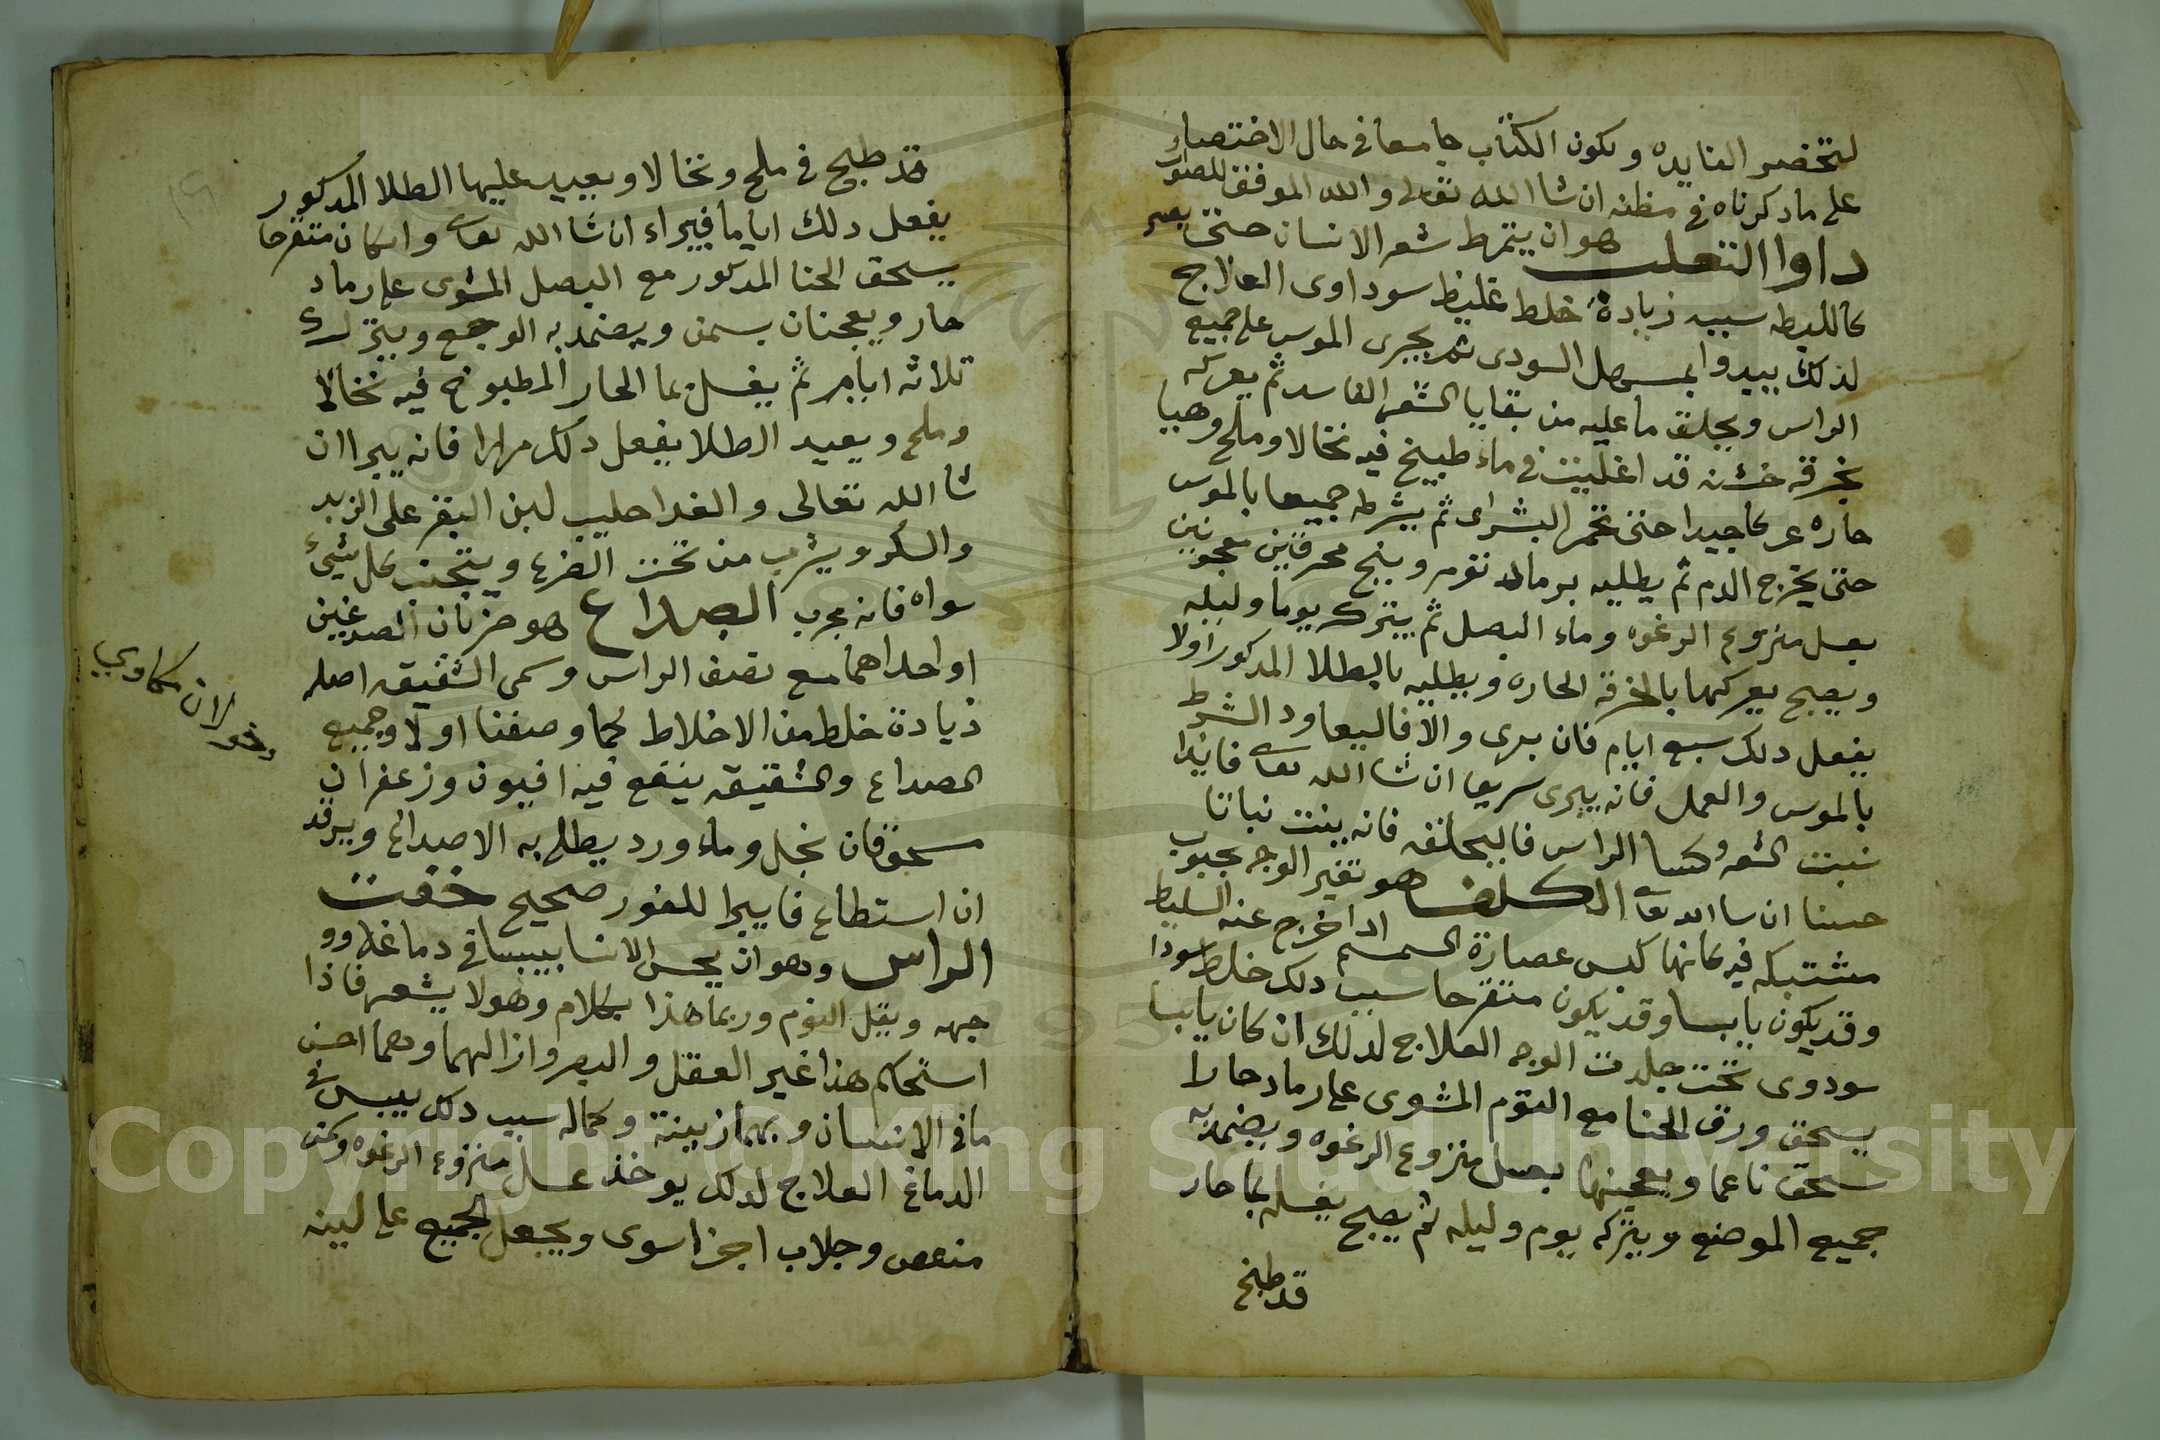 لتخضر الفايده ويكون الكتاب جامعا في حال الاختصار
على مادكرناه في مظنه ان شا الله تعالى والله الموفق للصواب
داوا الثعلب هو ان يتمرط شعر الانسان حتى يصير
كالليطه سببه زيادة خلط غليظ سوداوى العلاج
لذلك يبدوا بمسهل السودى ثم يجرى الموس على جميع
الراس ويحلق ما عليه من بقايا الشعر الفاسد ثم يعركه
بخرقه خشنه قد اغليت في ماء طبيخ فيه نخالا وملح وهيا
حاره عركا جيدا حتى تحمر البشراى ثم يشرطه جميعا بالموس
حتى يخرج الدم ثم يطليه برماد ثوم وبنج محرقين معجونين
بعسل منزوع الرغوه وماء البصل ثم يترك يوما وليله
ويصبح يعركها بالخرقه الحاره ويطليه بالطلا المدكور اولا
يفعل دلك سبع ايام فان برى والا فاليعاود الشرط
بالموس والعمل فانه يبرى سريعا ان شا الله تعالى فايدا
نبت الشعر وكسا الراس فاليحلقه فانه ينبت نباتا
حسنا ان سا الله تعالى الكلف هو تغير الوجه بحبوب
مشتبكه فيه كانها كبس عصارة السمسم ادا خرج عنه السليط
وقد يكون يابسا وقد يكون متقرحا سبب دلك خلط سودا
سودوى تحت جلدت الوجه العلاج لدلك ان كان يابسا
يسحق ورق الحنا مع الثوم المشوى على رماد حارا
سحق ناعما ويعجنها بعسل منزوع الرغوه ويضمد به
جميع الموضع ويتركه يوم وليله ثم يصبح يغسله بما حار
قد طبخ
قد طبخ في ملح ونخالا ويعيد عليها الطلا المدكور
يفعل دلك اياما فيبراء ان شا الله تعالى وان كان متقرحا
يسحق الحنا المدكور مع البصل المشوى على رماد
حار ويعجنان بسمن ويضمد به الوجع ويترك
ثلاثه ايام ثم يغسل بما الحار المطبوخ فيه نخالا
وملح ويعيد الطلا يفعل دلك مرارا فانه يبرا ان
شا الله تعالى والغدا حليب لبن البقر على الزبد
والسكر ويشرب من تحت الضرع ويتجنب كل شيء
سواه فانه مجرب الصداع هو ضربان الصدغين
او احداهما مع نصف الراس وسمى الشقيقه اصله
زيادة خلط من الاخلاط كما وصفنا اولا وجميع
الصداع والشقيقه ينفع فيه افيون وزعفران
مسحوقان بخل وماء ورد يطلى به الاصداغ ويرقد
ان استطاع فايبرا للفور صحيح خفت
الراس وهو ان يحس الانسا بيبسا في دماغه و
جبهه ويقل النوم وربما هذا بكلام وهو لا يشعر فاذا
استحكم هذا غير العقل والبصر وازالهما وهما احسن
ما في الانسان وبهما زينة وكماله سبب دلك يبس في
الدماغ العلاج لدلك يوخذ عسل منزوع الرغوه
وجلاب اجزا سوى ويجعل الجميع على لبنه